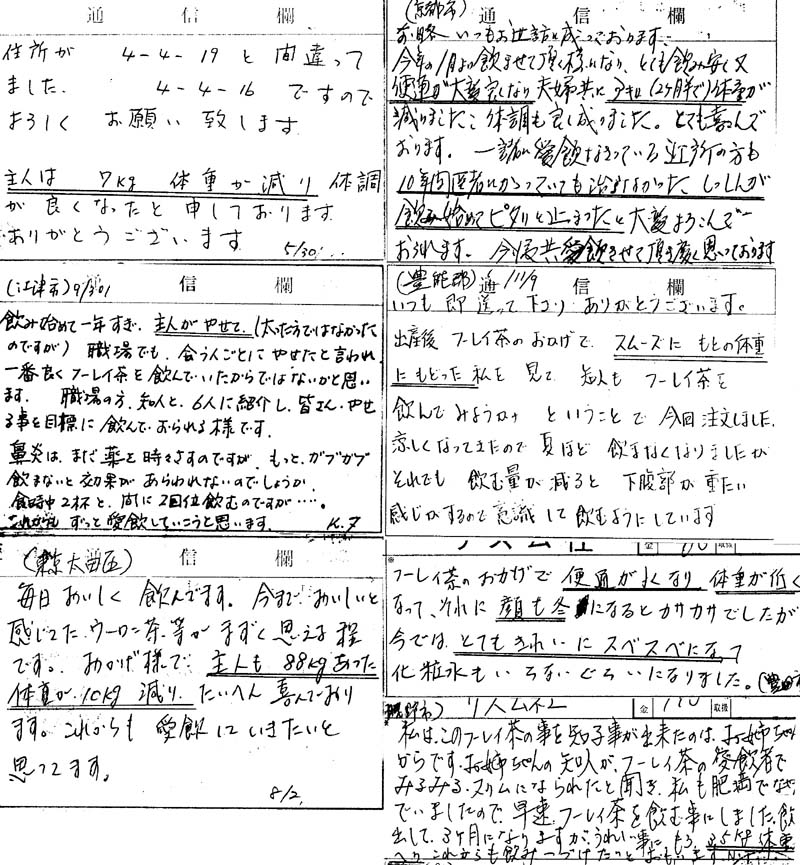 通信欄
住所が 4-4-19 と間違って
ました. 4-4-16 ですので
よろしく お願い致します
主人は 7kg 体重が減り 体調
が良くなったと申しております
ありがとうございます
5/30
(江津市) 9/301
信欄
飲み始めて一年すぎ、主人がやせて、(太った方ではなかった
のですが) 職場でも、会う人ごとにやせたと言われ
一番良くフーレイ茶を飲んでいたからではないかと思い
ます. 職場の方、知人と、6人に紹介し、皆さん、やせ
る事を目標に飲んでおられる様です.
鼻炎は、まだ薬を時々さすのですが、もっと、ガブガブ
飲まないと効果があらわれないのでしょうか.
食時中2杯と、間に2回位飲むのですが…….
これからも ずっと愛飲していこうと思います. K.タ
(東京大田区)
信欄
毎日おいしく飲んでます。今までおいしいと
感じてた、ウーロン茶、等がまずく思える程
です。おかげ様で、主人も 88kgあった
体重が、10kg 減り、たいへん喜んでおり
ます。これからも愛飲していきたいと
思ってます。
8/2
(京都市)
通信欄
前略 いつもお世話に成っております.
今年の1月より飲ませて頂く様になり、とても飲み安く又
便通が大変良くなり夫婦共に 3キロ(2ヶ月半で)体重が
減りました。体調も良く成りました。とても喜んで
おります。一諸に愛飲なさっている近所の方も
10年間医者にかかっていても治らなかった しっしんが
飲み始めてピタリと止まったと大変よろこんで
おられます。今後共愛飲させて頂き度く思っております
(豊能郡) 11/9
通信欄
いつも即送って下さり ありがとうございます。
出産後 フーレイ茶のおかげで、スムーズにもとの体重
にもどった私を見て、知人も フーレイ茶を
飲んでみようか ということで今回注文しました.
涼しくなってきたので夏ほど飲まなくなりましたが
それでも飲む量が減ると 下腹部が重たい
感じがするので意識して飲むようにしています
リズム社
金
取扱
フーレイ茶のおかげで 便通がよくなり 体重が低く
なって、それに顔も冬になるとカサカサでしたが
今では、とてもきれいにスベスベになって
化粧水もいらないぐらいになりました。
リズム社
金
取扱
私は、このフーレイ茶の事を知る事が出来たのは、お姉ちゃん
からです。お姉ちゃんの知人が、フーレイ茶の愛飲者で
みるみるスリムになられたと聞き、私も肥満でなやん
でいましたので、早速、フーレイ茶を飲む事にしました。飲み
出して、3ヶ月になりますが、うれしい事に、もう 3.5kg 体重
へり これからも飲みつづけたい